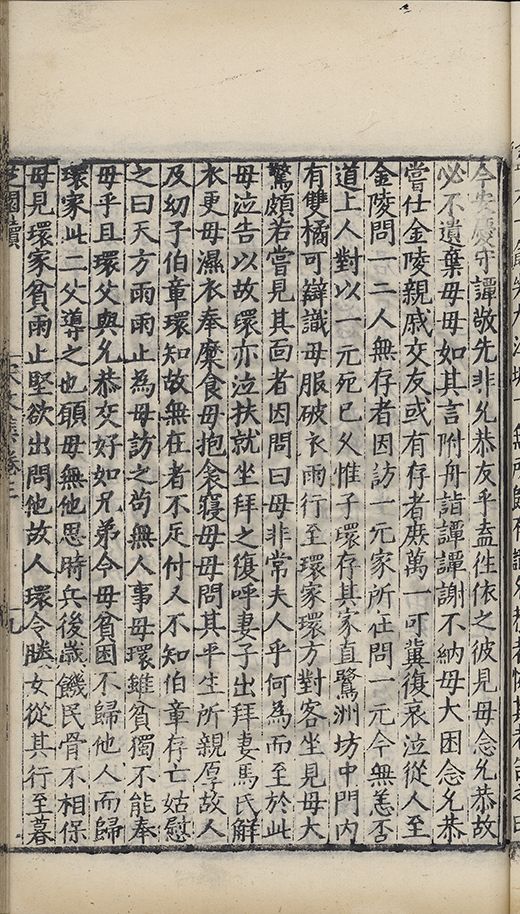 今安慶守譚敬先非允恭友乎盍徃依之彼見母念允恭故
必不遺棄母母如其言附舟詣譚譚謝不納母大困念允恭
嘗仕金陵親戚交友或有存者庶萬一可冀復哀泣從人至
金陵問一二人無存者因訪一元家所在問一元今無恙否
道上人對以一元死已久惟子環存其家直鷺洲坊中門内
有雙橘可辯識母服破衣雨行至環家環方對客坐見母大
驚頗若嘗見其面者因問曰母非常夫人乎何為而至於此
母泣告以故環亦泣扶就坐拜之復呼妻子出拜妻馬氏解
衣更母濕衣奉糜食母抱衾寢母母問其平生所親厚故人
及幼子伯章環知故無在者不足付又不知伯章存亡姑慰
之曰天方雨雨止為母訪之茍無人事母環雖貧獨不能奉
母乎且環父與允恭交好如兄弟今母貧困不歸他人而歸
環家此二父導之也願母無他思時兵後歲饑民骨不相保
母見環家貧雨止堅欲出問他故人環令媵女從其行至暮